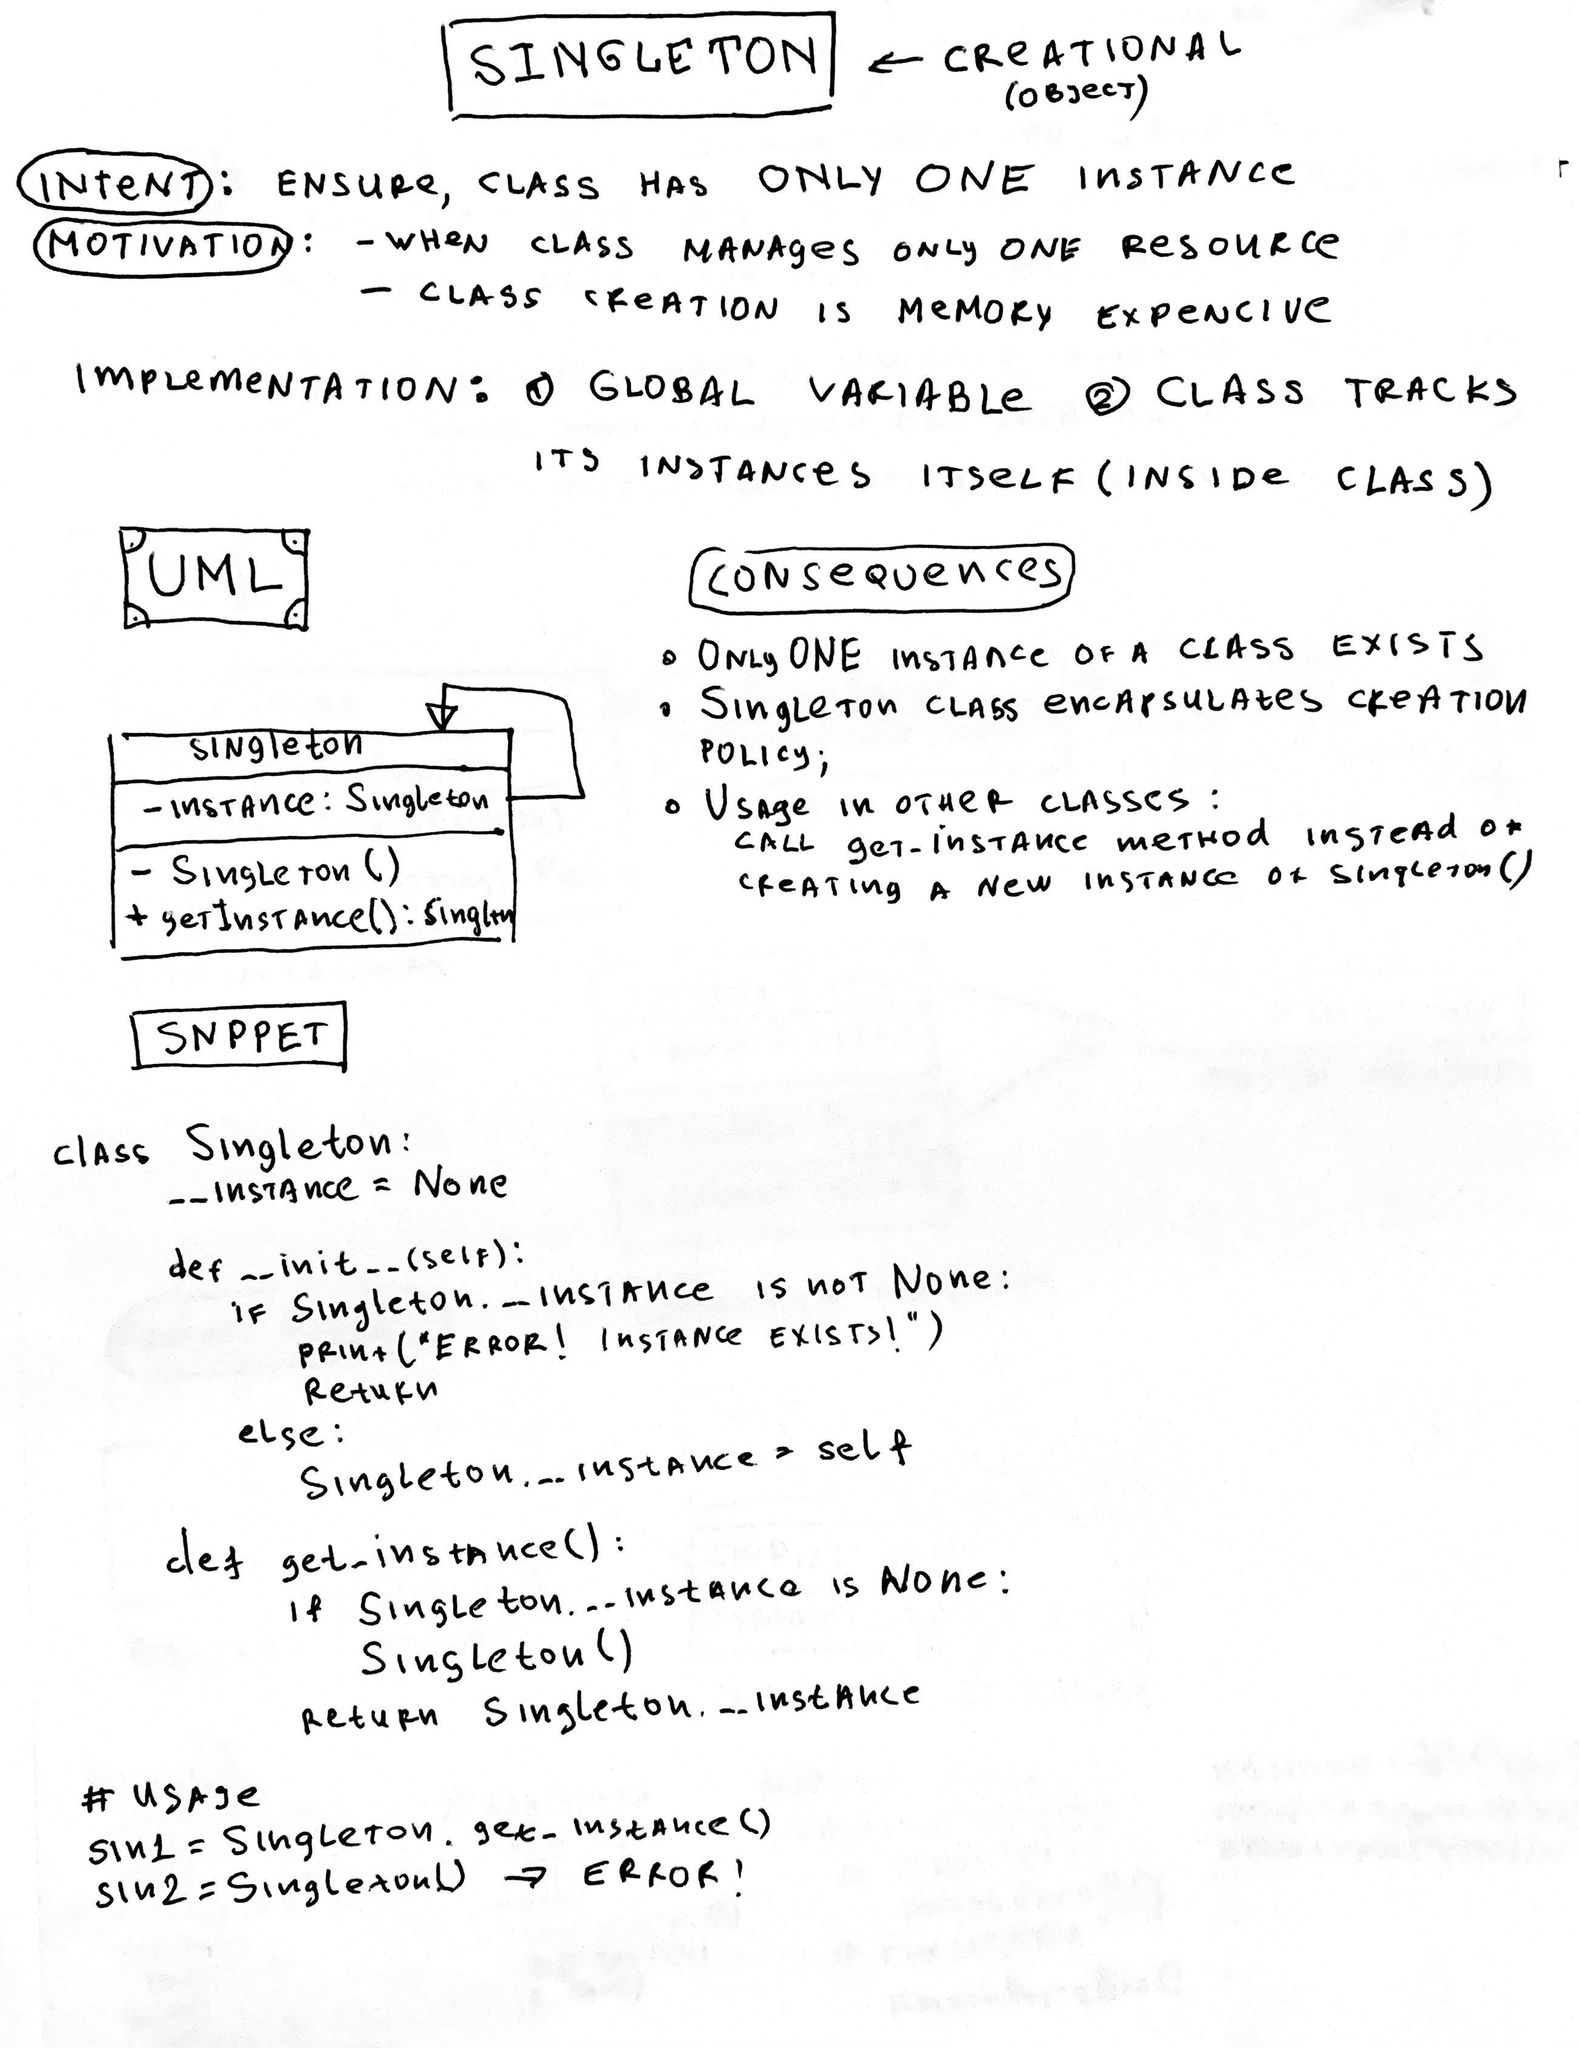 SINGLETON ← CREATIONAL
(OBJECT)
INTENT: ENSURE, CLASS HAS ONLY ONE INSTANCE
MOTIVATION: - WHEN CLASS MANAGES ONLY ONE RESOURCE
- CLASS CREATION IS MEMORY EXPENCIVE
IMPLEMENTATION: ① GLOBAL VARIABLE ② CLASS TRACKS
ITS INSTANCES ITSELF (INSIDE CLASS)
UML
Singleton
- INSTANCE: Singleton
- Singleton()
+ getInstance(): Singltn
CONSEQUENCES
• ONLY ONE INSTANCE OF A CLASS EXISTS
• Singleton CLASS ENCAPSULATES CREATION
POLICY;
• Usage IN OTHER CLASSES:
CALL get_instance METHOD INSTEAD OF
CREATING A NEW INSTANCE OF Singleton()
SNPPET
class Singleton:
__instance = None
def __init__(self):
if Singleton.__instance is not None:
print("ERROR! INSTANCE EXISTS!")
Return
else:
Singleton.__instance = self
def get_instance():
if Singleton.__instance is None:
Singleton()
Return Singleton.__instance
# USAGE
sin1 = Singleton.get_instance()
sin2 = Singleton() → ERROR!